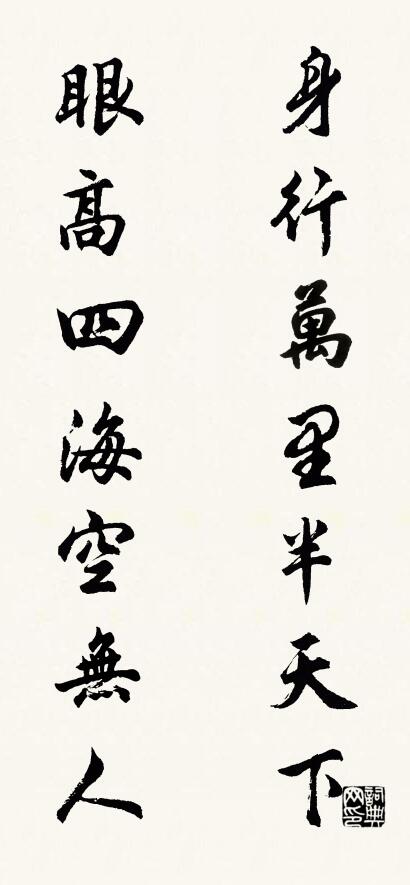 身行萬里半天下
眼高四海空無人
詞典网印